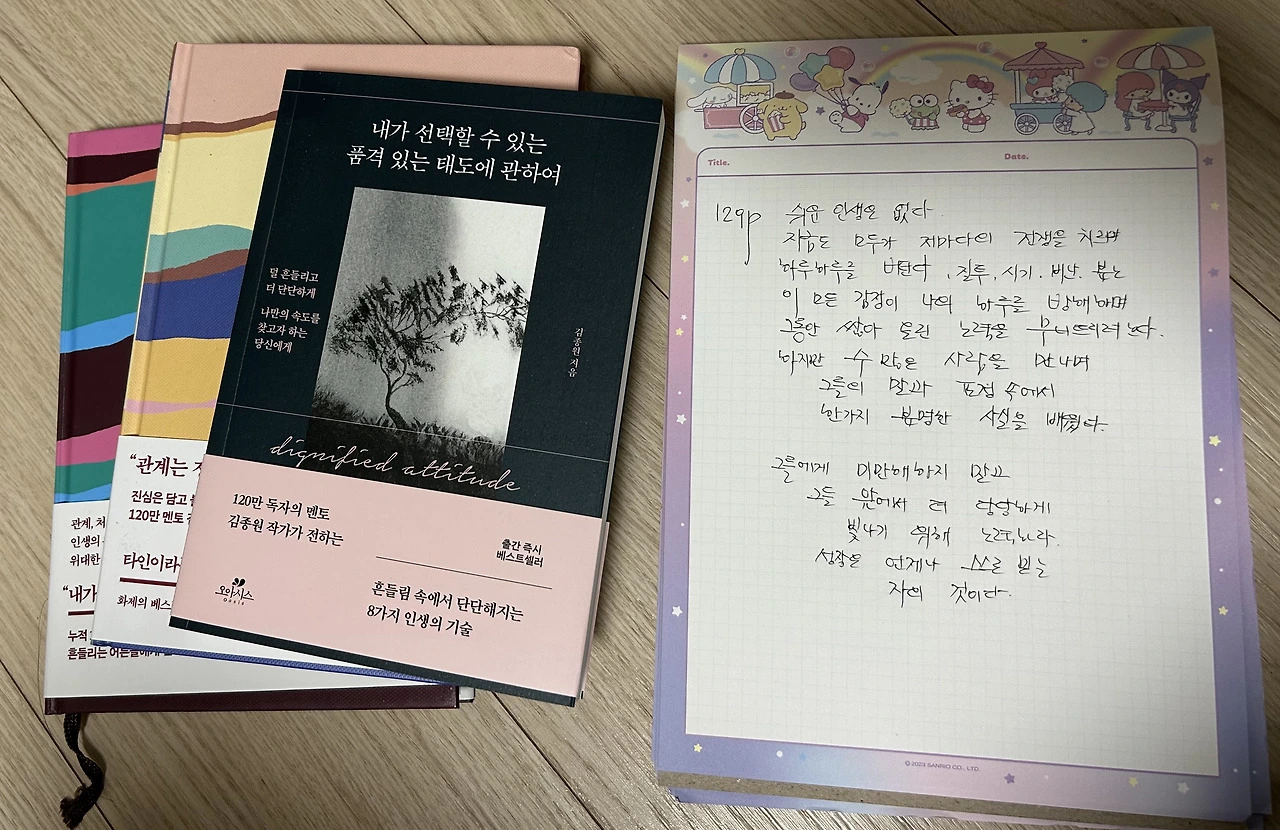 내가 선택할 수 있는
품격 있는 태도에 관하여
덜 흔들리고
더 단단하게
나만의 속도를
찾고자 하는
당신에게
김종원 지음
dignified attitude
120만 독자의 멘토
김종원 작가가 전하는
출간 즉시
베스트셀러
흔들림 속에서 단단해지는
8가지 인생의 기술
오아시스
Oasis
“관계는
진심은 담고
120만 멘토
타인이라
화제의 베스
관계, 처
인생의
위대한
“내가
누적
흔들리는 어른들에게
Title.
Date.
129p 쉬운 인생은 없다.
지금도 모두가 저마다의 전쟁을 치르며
하루하루를 버틴다. 질투, 시기, 비난, 분노
이 모든 감정이 나의 하루를 방해하며
그동안 쌓아 올린 노력을 무너뜨리려 한다.
하지만 수 많은 사람을 만나며
그들의 말과 표정 속에서
한가지 분명한 사실을 배웠다.
그들에게 미안해하지 말고
그들 앞에서 더 당당하게
빛나기 위해 노력하라.
성장은 언제나 스스로 믿는
자의 것이다.
© 2023 SANRIO CO., LTD.